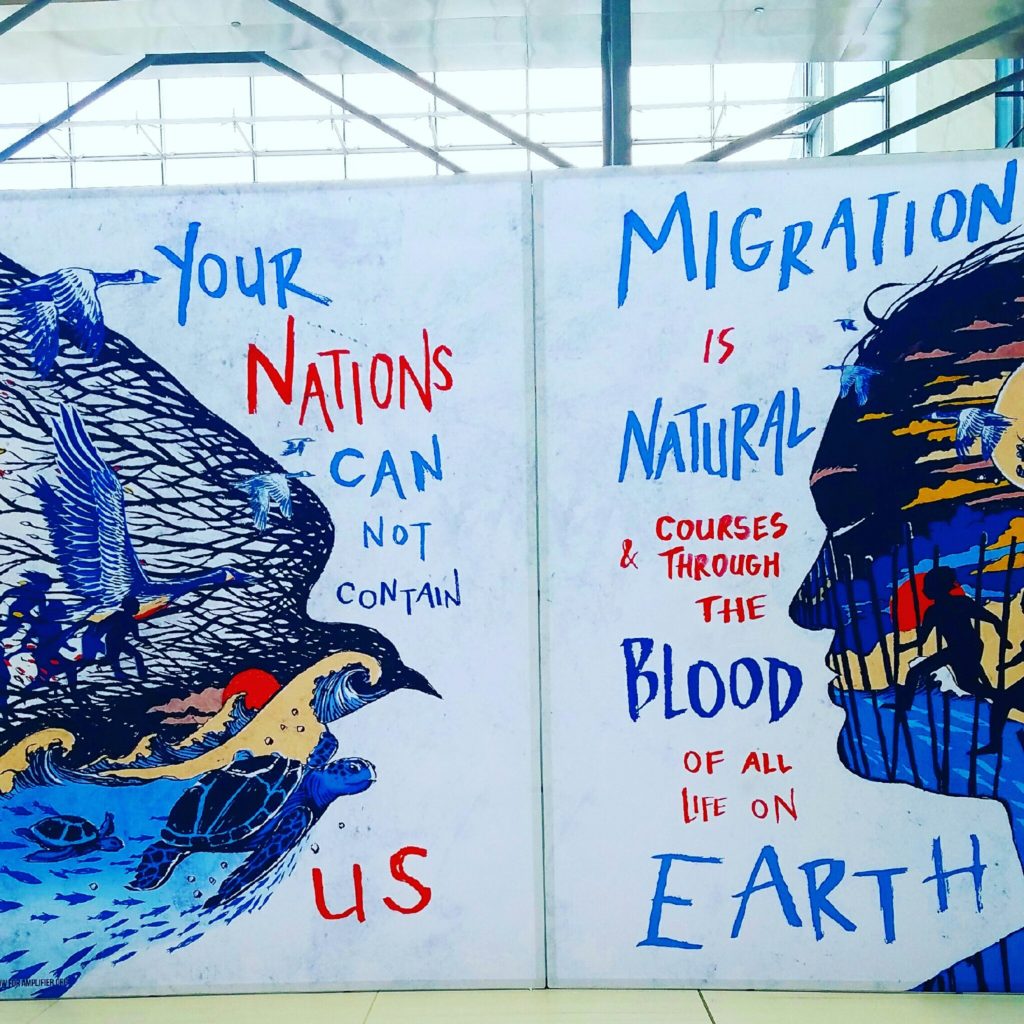 YOUR
NATIONS
CAN
NOT
CONTAIN
US
FOR AMPLIFIER.ORG
MIGRATION
IS
NATURAL
COURSES
& THROUGH
THE
BLOOD
OF ALL
LIFE ON
EARTH